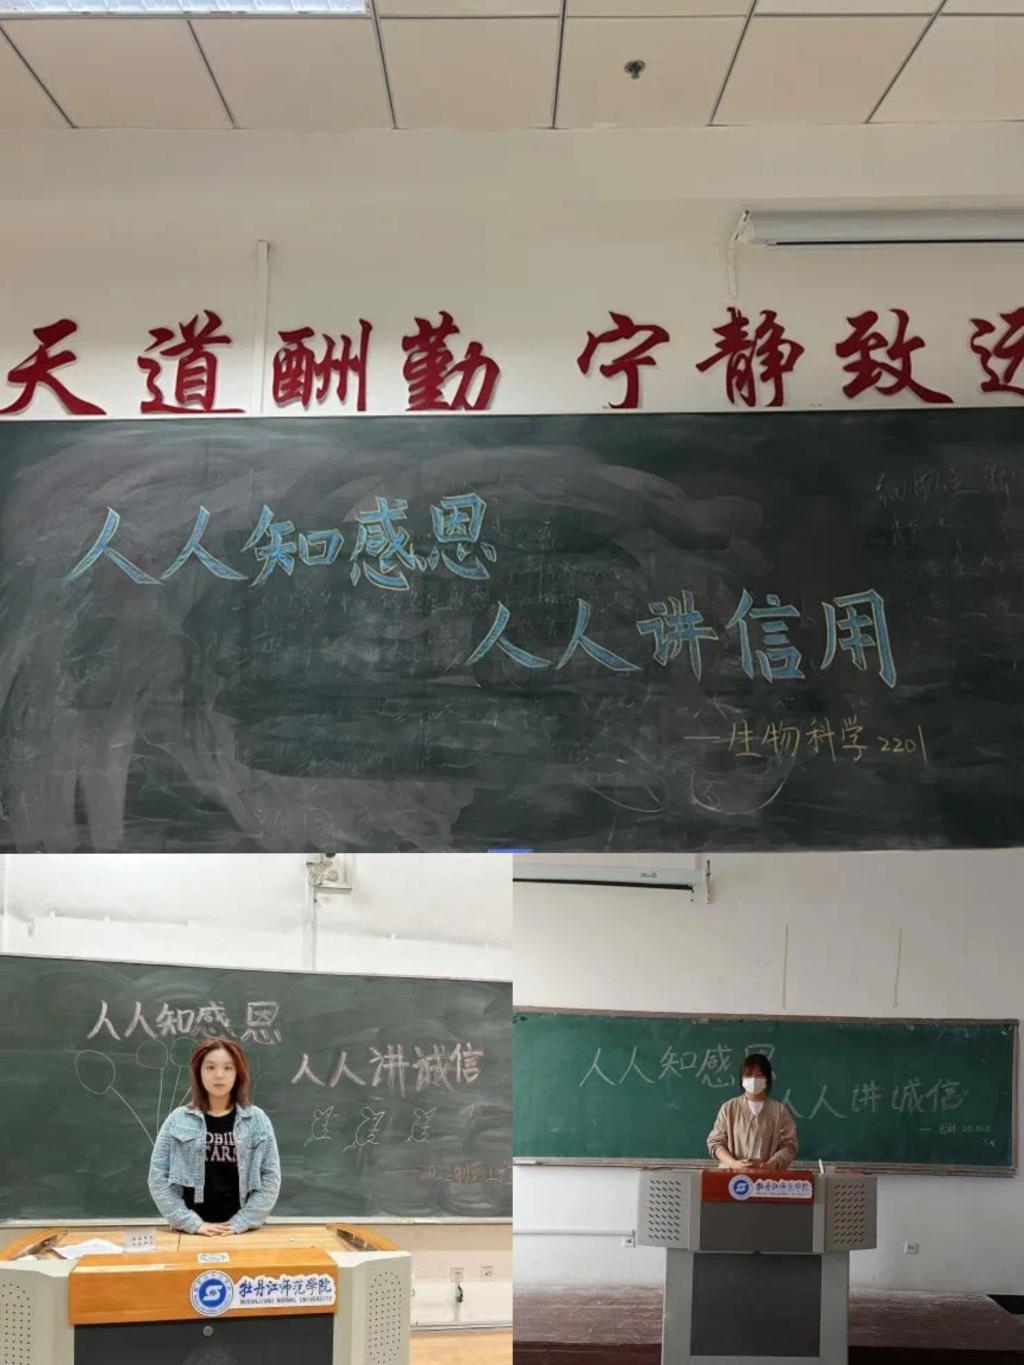 天道酬勤 宁静致远
人人知感恩
人人讲信用
—生物科学2201
人人知感恩
人人讲誠信
OBIL
TARS
牡丹江师范学院
MUDANJIANG NORMAL UNIVERSITY
人人知感恩
人人讲诚信
牡丹江师范学院